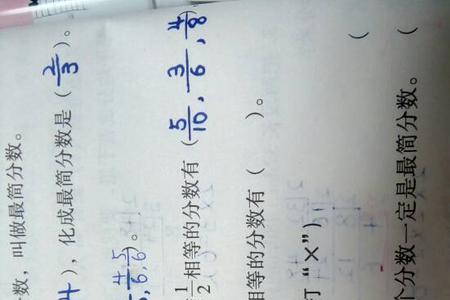 数，叫做最简分数。
4），化成最简分数是（2/3）。
4/6, 5/6)。
1/2相等的分数有（5/10, 3/6, 4/8
相等的分数有（　　）。
打“×”）
（
个分数一定是最简分数。（